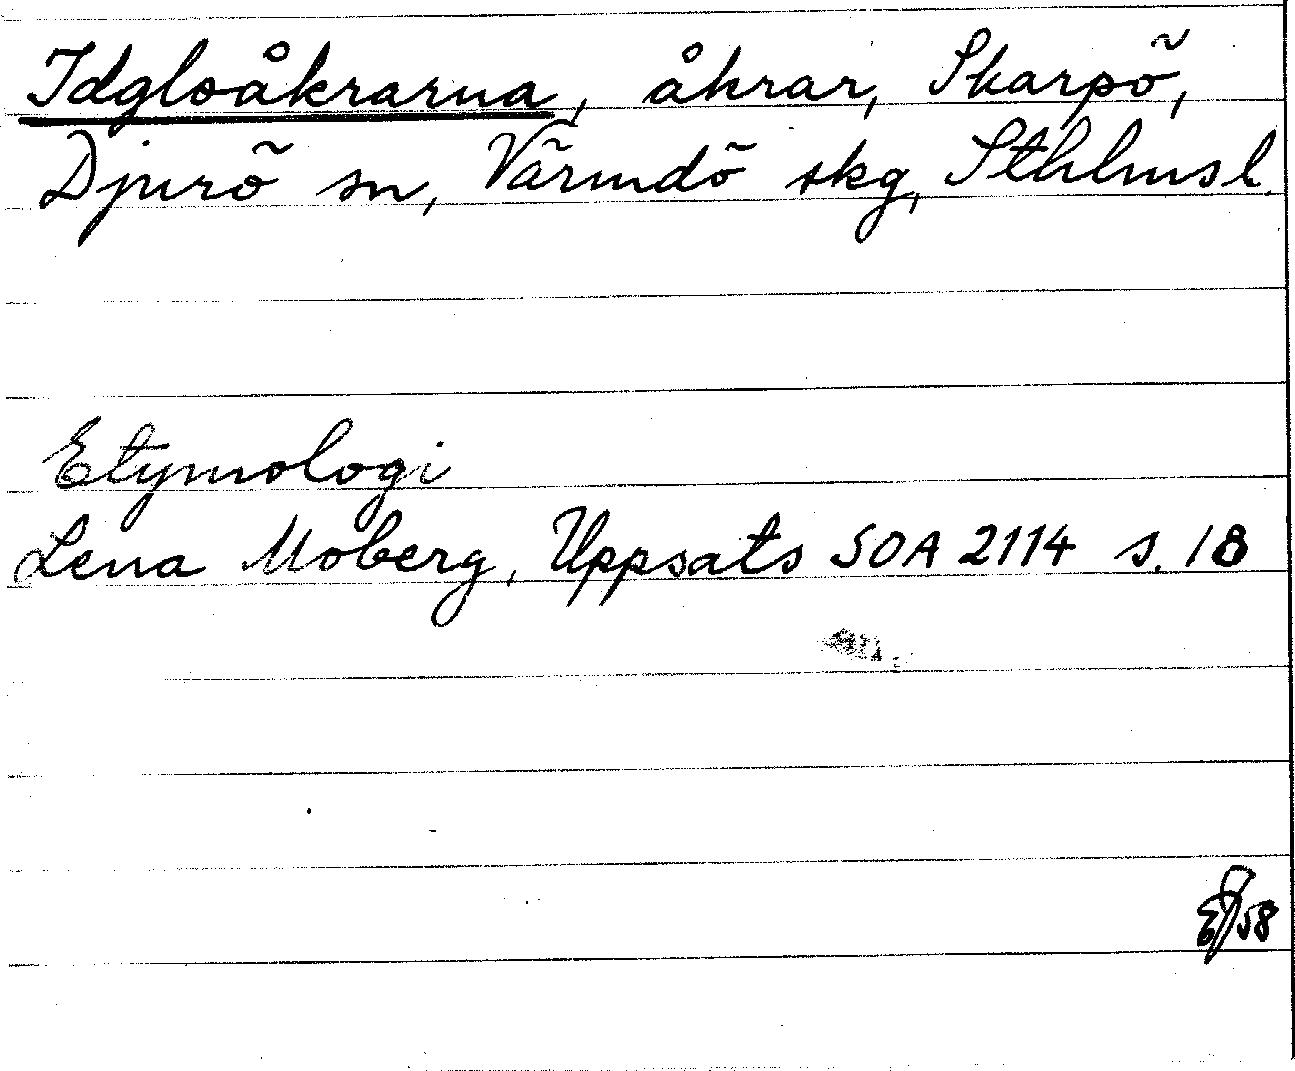 Idgloåkrarna, åkrar, Skarpö,
Djurö sn, Värmdö skg, Sthlmsl.
Etymologi
Lena Moberg, Uppsats SOA 2114 s. 18
58